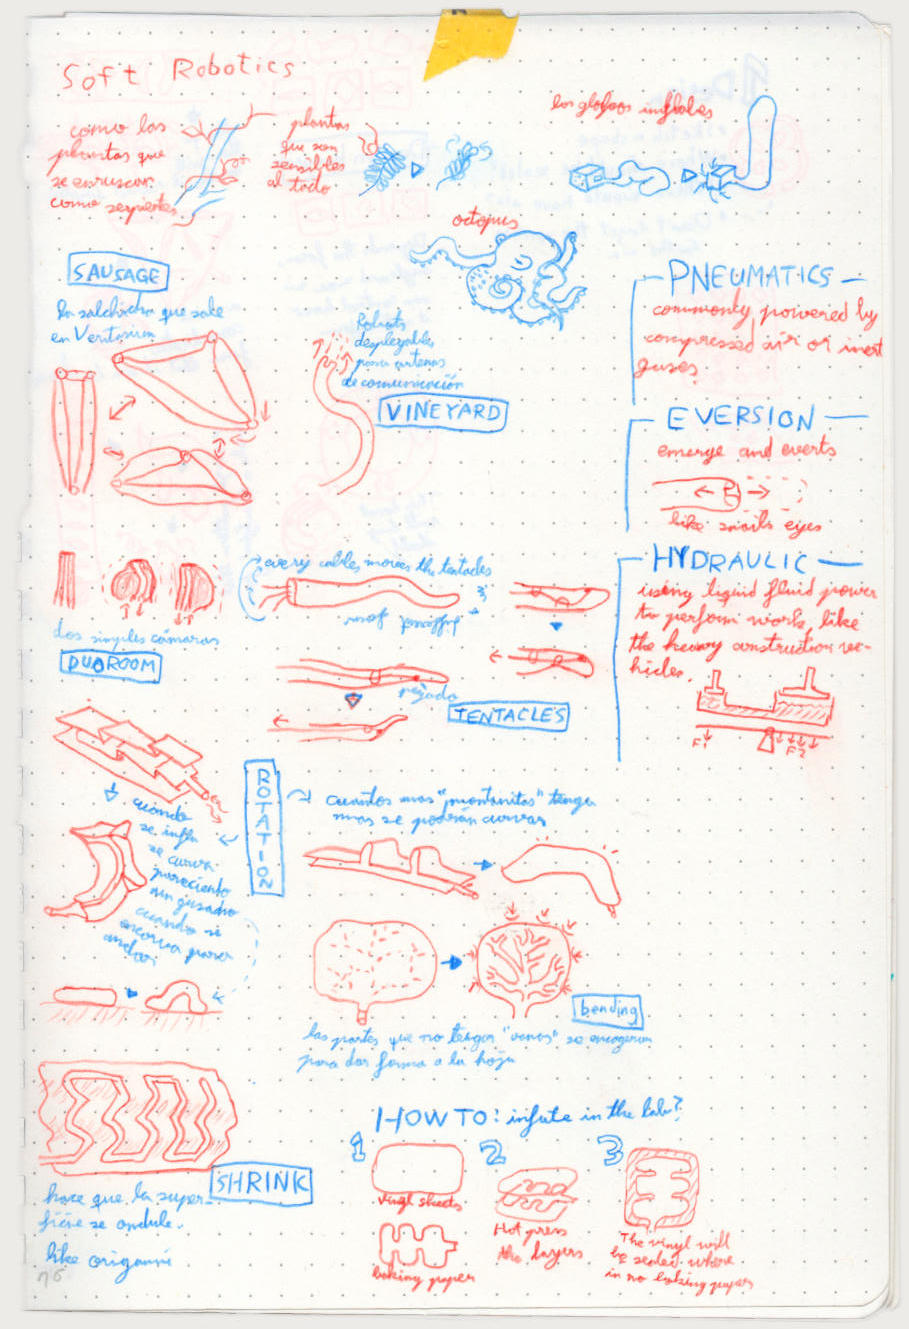 Soft Robotics
como las
plantas que
se enruscan
como serpientes
plantas
que son
sensibles
al tacto
los globos inflables
octopus
SAUSAGE
la salchicha que sale
en Veritasium
Robots
desplegables
para antenas
de comunicación
VINEYARD
PNEUMATICS
commonly powered by
compressed air or inert
gases
EVERSION
emerge and everts
like snails eyes
HYDRAULIC
using liquid fluid power
to perform work, like
the heavy construction ve-
hicles.
F1
F2
dos simples cámaras
DUOROOM
every cables moves the tentacles
pegado
TENTACLES
ROTATION
cuando
se infla
se curva
pareciendo
un gusano
cuando se
encorva para
andar
cuantos mas "montanitas" tenga
mas se podrán curvar
bending
las partes que no tengan "venas" se encogeran
para dar forma a la hoja
SHRINK
hace que la super-
ficie se ondule.
like origami
76
HOW TO: inflate in the lab?
1
vinyl sheets
baking paper
2
Hot press
the layers
3
The vinyl will
be sealed where
in no baking paper